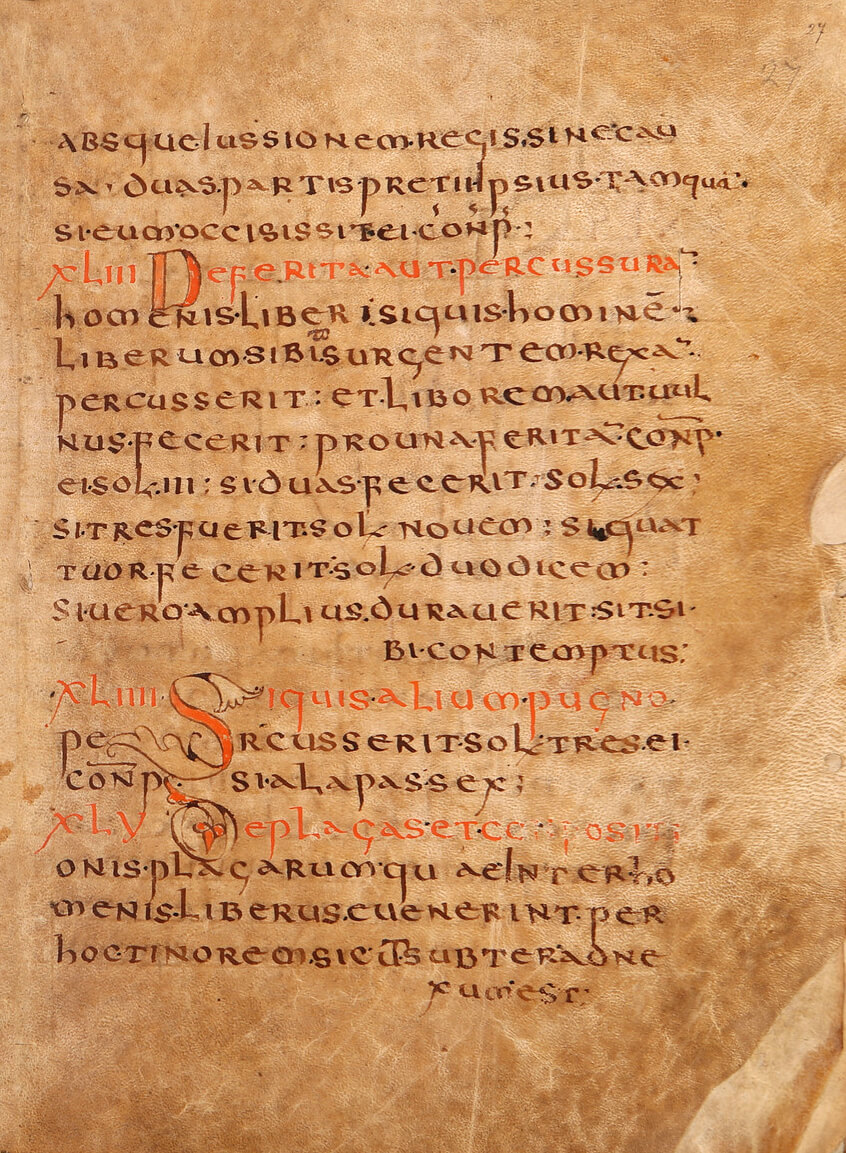 27
27
ABSqUEIUSSIONEM·REGIS·SINECAU
SA·DUAS·PARTISPRETIIIPSIUS·TAMquā·
SI·EUM·OCCISISSIT·EI·COÑP·;
XLIII DEFERITA·AUT·PERCUSSURA
hOMENIS·LIBERI·SIQUIS·hOMINĒ·
LIBERUM·SIBISURGENTEM·REXA
PERCUSSERIT : ET·LIBOREM·AUT·UUL
NUS·FECERIT : PROUNA·FERITA·COÑP·
EI·SOL·III ; SI·DUAS·FECERIT·SOL·SEX ;
SI·TRES·FUERIT·SOL NOUEM ; SI·QUAT
TUOR·FECERIT·SOL·DUODICEM :
SI·UERO·AMPLIUS·DURAUERIT·SIT·SI·
BI·CONTEMPTUS ;
XLIIII SIQUIS·ALIUM·PUGNO·
PERCUSSERIT·SOL·TRES·EI·
COÑP SI·ALAPAS·SEX ;
XLV DEPLAGAS·ET
ONIS·PLAGARUM·QUAEINTERhO
MENIS·LIBERUS·EUENERINT·PER
hOCTINOREM·SICUT·SUBTERADNE
XUM·EST·